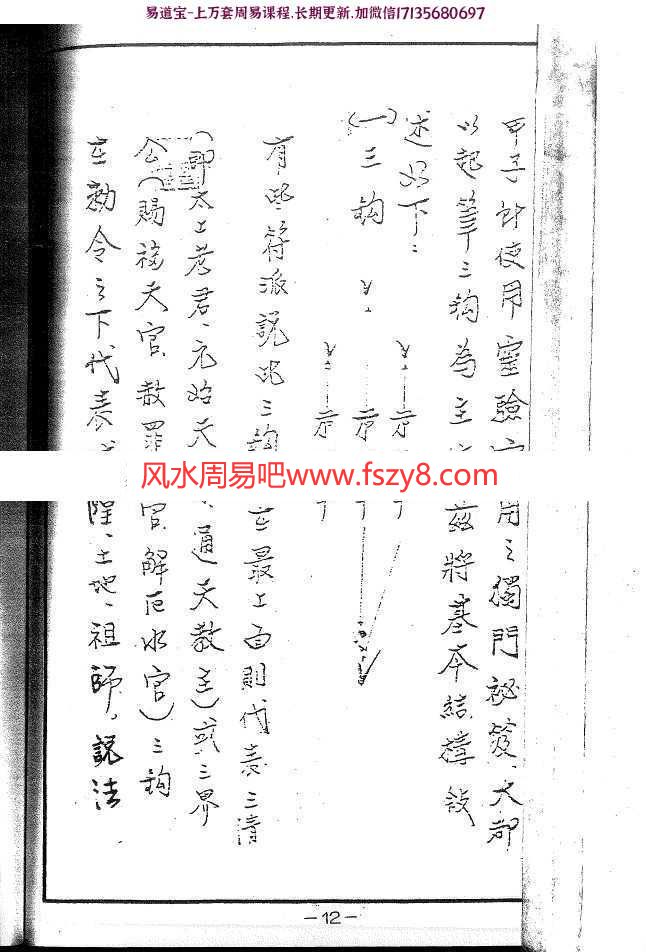 易道宝-上万套周易课程.长期更新.加微信17135680697
甲子 使用靈驗 用之獨門祕笈、大都
以起筆三鈎為主 茲將基本結構敍
述如下：
(一)三鈎
示 示 示
有些符派說此三鈎 在最上面則代表三清
(即太上老君、元始天 、通天教主)或三界
公(賜福天官、赦罪 官、解厄水官)三鈎
在勅令之下、代表 隍、土地、祖師、說法
风水周易吧www.fszy8.com
-12-